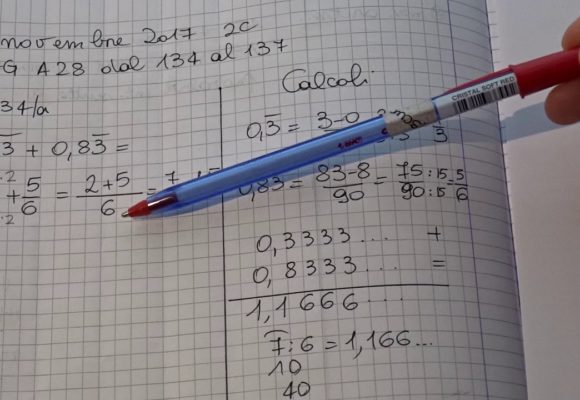 novembre 2017 2C
G A28 dal 134 al 137
34/a
3̅ + 0,83̅ =
+ 5/6 = (2+5)/6 = 7
·2
·2
Calcoli
0,3̅ = (3-0)/
3
0,83 = (83-8)/90 = (75:15)/(90:15) = 5/6
0,3333... +
0,8333... =
1,1666...
7:6 = 1,166...
10
40
CRISTAL SOFT RED